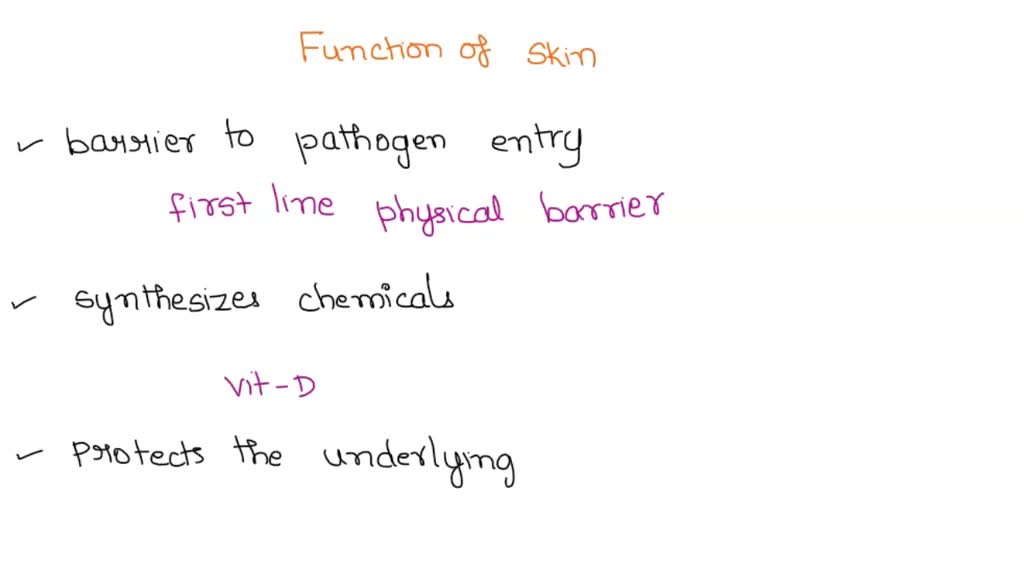 Function of skin
barrier to pathogen entry
first line physical barrier
synthesizes chemicals
Vit-D
Protects the underlying